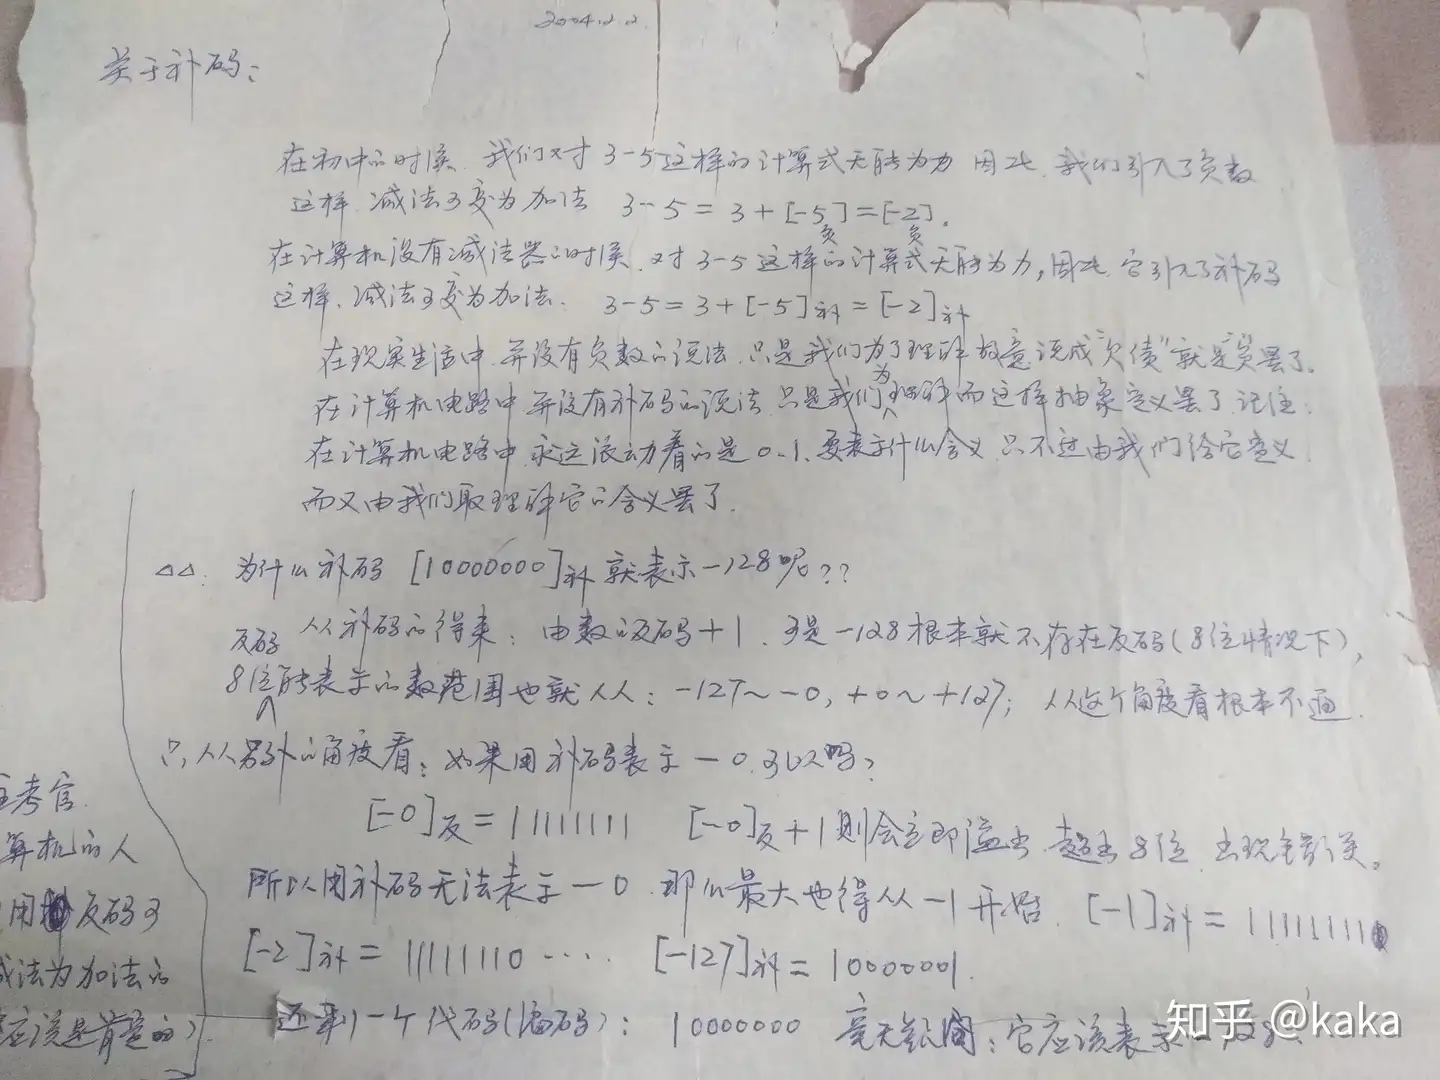 2004.2.2.
关于补码：
在初中的时候，我们对 3-5 这样的计算式无能为力 因此，我们引入了负数
这样，减法可变为加法 3-5 = 3+[-5]负=[-2]负.
在计算机没有减法器的时候，对 3-5 这样的计算式无能为力，因此，它引入了补码
这样，减法可变为加法. 3-5 = 3+[-5]补 = [-2]补
在现实生活中，并没有负数的说法，只是我们为了理解故意说成"欠债"就是"负"罢了.
在计算机电路中 并没有补码的说法，只是我们为理解而这样抽象定义罢了，记住：
在计算机电路中，永远滚动着的是 0.1、要表示什么含义，只不过由我们给它定义
而又由我们取理解它的含义罢了.
△△. 为什么补码 [10000000]补 就表示 -128呢??
从补码的得来：由数的反码+1. 可是 -128 根本就不存在反码(8位情况下),
8位反码能表示的数范围也就从：-127～-0, +0～+127; 从这个角度看根本不通.
从另外的角度看：如果用补码表示 -0 可以吗?
[-0]反 = 11111111 [-0]反+1 则会立即溢出 超出8位 出现错误。
所以用补码无法表示 -0. 那么最大也得从 -1 开始. [-1]补 = 11111111
[-2]补 = 11111110 ····· [-127]补 = 10000001.
还剩一个代码(编码)： 10000000 毫无疑问：它应该表示
考官.
算机的人
用 反码可
减法为加法的
应该是肯定的).
知乎 @kaka